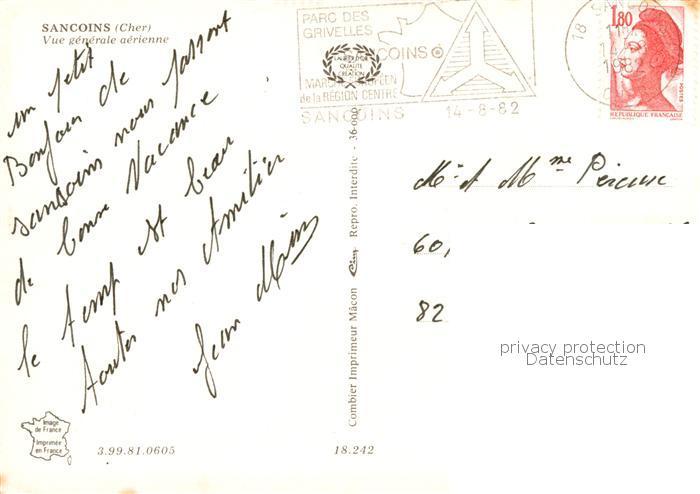 SANCOINS (Cher)
Vue générale aérienne
un petit
Bonjour de
sancoins nous passont
de bonne Vacance
le temp est beau
toutes nos Amitier
Jean
PARC DES
GRIVELLES
COINS
MARCHÉ
de la RÉGION CENTRE
SANCOINS 14-8-82
18 SANCO
1,80
POSTES
REPUBLIQUE FRANÇAISE
Mr et Mme
60,
82
privacy protection
Datenschutz
Combier Imprimeur Mâcon Cim Repro. Interdite - 36-000
Image
de France
Imprimée
en France
3.99.81.0605
18.242